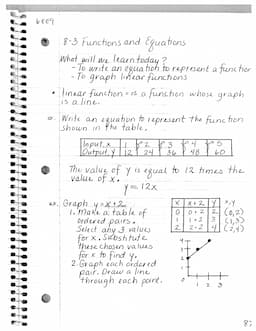 8-3 Functions and Equations
What will we learn today?
- To write an equation to represent a function
- To graph linear functions
• linear function - is a function whose graph
is a line.
Write an equation to represent the function
shown in the table.
Input, x 1 2 3 4 5
Output, y 12 24 36 48 60
The value of y is equal to 12 times the
value of x.
y = 12x
ex. Graph y = x+2
1. Make a table of
ordered pairs.
Select any 3 values
for x. Substitute
these chosen values
for x to find y.
2. Graph each ordered
pair. Draw a line
through each point.
x x+2 y x,y
0 0+2 2 (0,2)
1 1+2 3 (1,3)
2 2+2 4 (2,4)
1 2 3